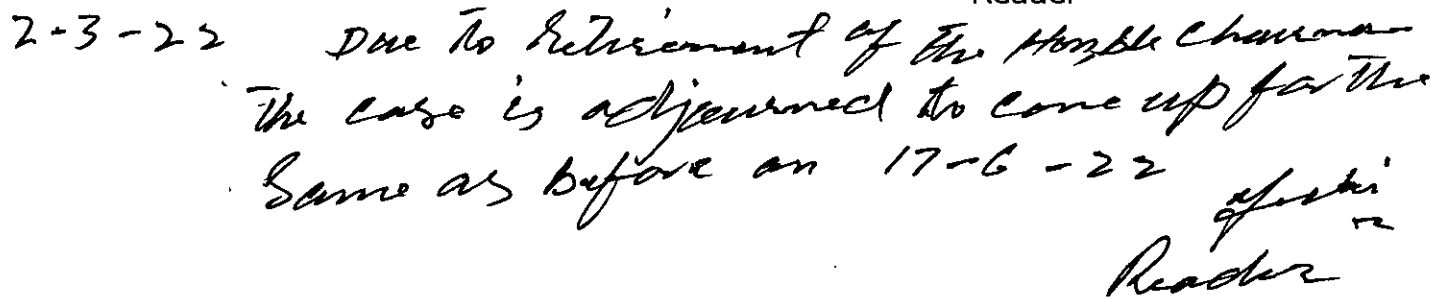 Reader
2-3-22 Due to Retirement of the Hon,ble Chairman
The case is adjourned to come up for the
Same as before on 17-6-22
Reader